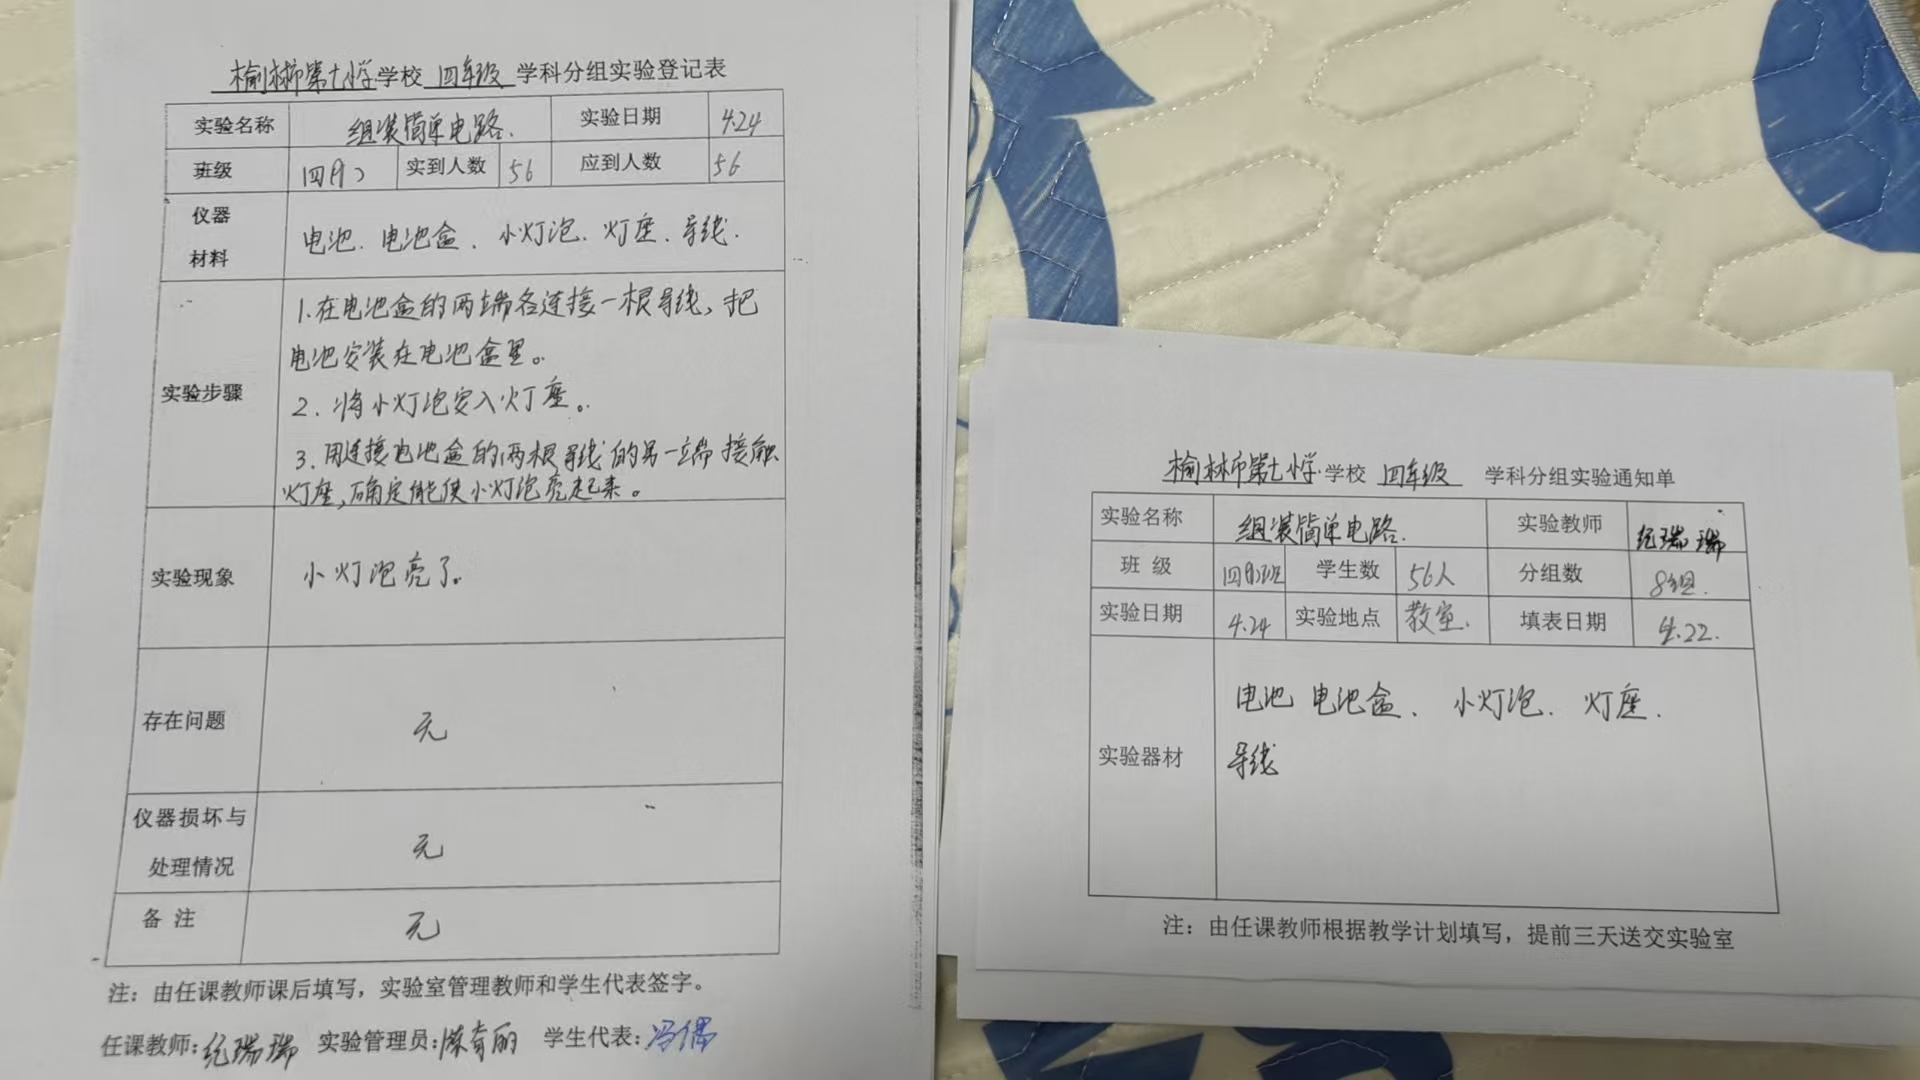 榆林市第七小学学校 四年级 学科分组实验登记表
实验名称 组装简单电路. 实验日期 4.24
班级 实到人数 56 应到人数 56
仪器材料 电池、电池盒、小灯泡、灯座、导线.
实验步骤
1.在电池盒的两端各连接一根导线,把
电池安装在电池盒里。
2.将小灯泡安入灯座。
3.用连接电池盒的两根导线的另一端接触
灯座,确定能使小灯泡亮起来。
实验现象 小灯泡亮了。
存在问题 无
仪器损坏与处理情况 无
备 注 无
注：由任课教师课后填写，实验室管理教师和学生代表签字。
任课教师:纪瑞瑞 实验管理员: 学生代表:
榆林市第七小学学校 四年级 学科分组实验通知单
实验名称 组装简单电路. 实验教师 纪瑞瑞
班 级 学生数 56人 分组数 8组.
实验日期 4.24 实验地点 教室. 填表日期 4.22.
实验器材
电池 电池盒、小灯泡、灯座.
导线
注：由任课教师根据教学计划填写，提前三天送交实验室